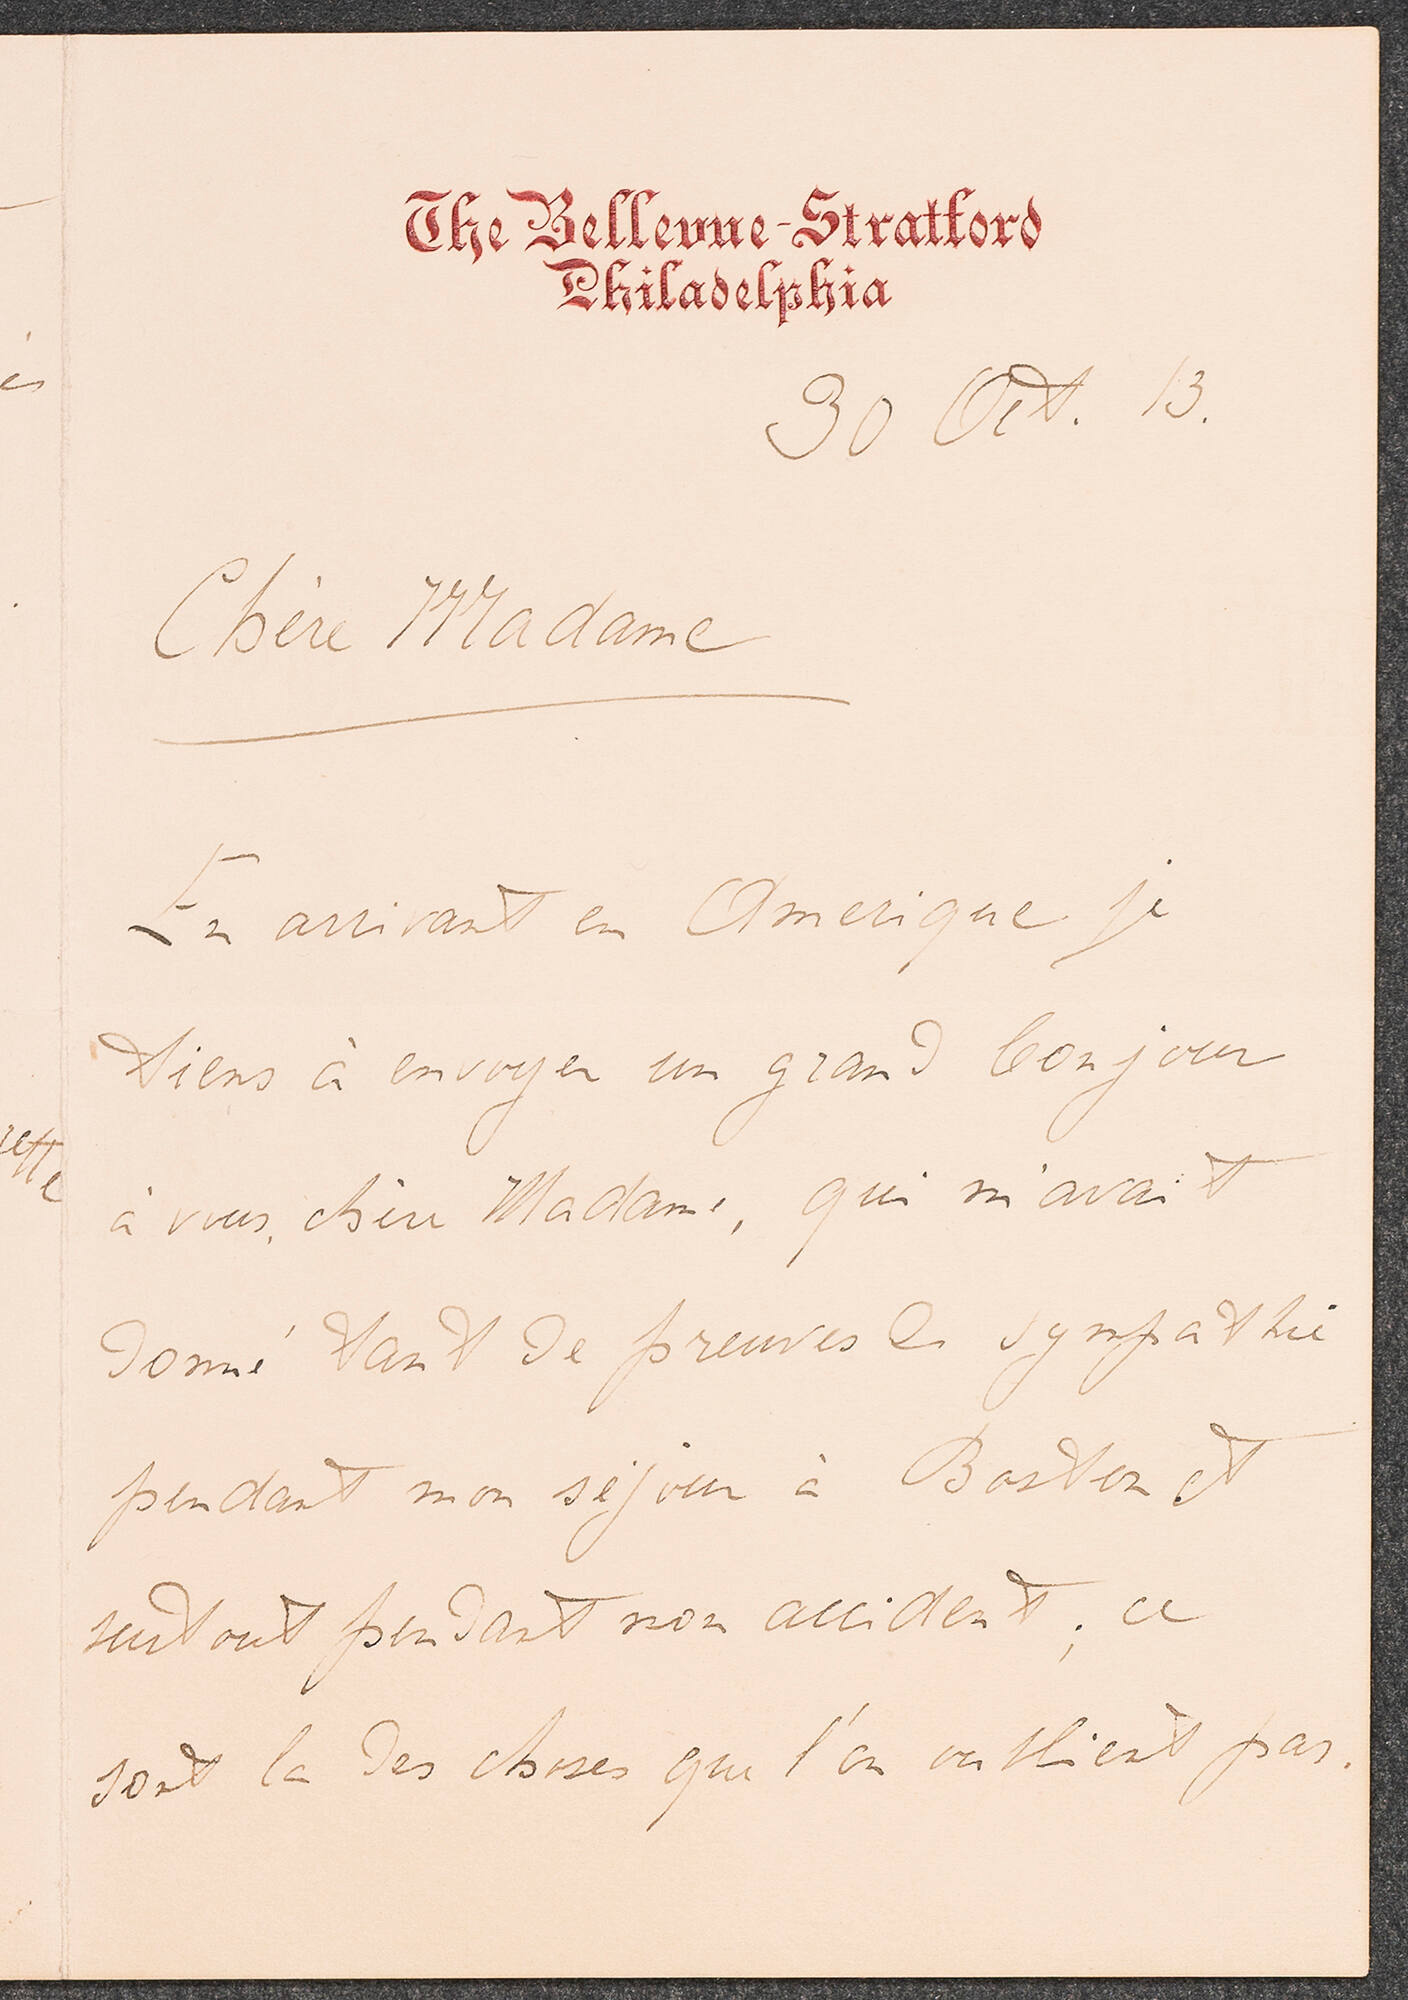 The Bellevue-Stratford
Philadelphia
30 Oct. 13.
Chère Madame
En arrivant en Amerique je
tiens à envoyer un grand bonjour
à vous, chère Madame, qui m'avait
donné tant de preuves de sympathie
pendant mon séjour à Boston et
surtout pendant mon accident; ce
sont la des choses que l'on oublient pas.